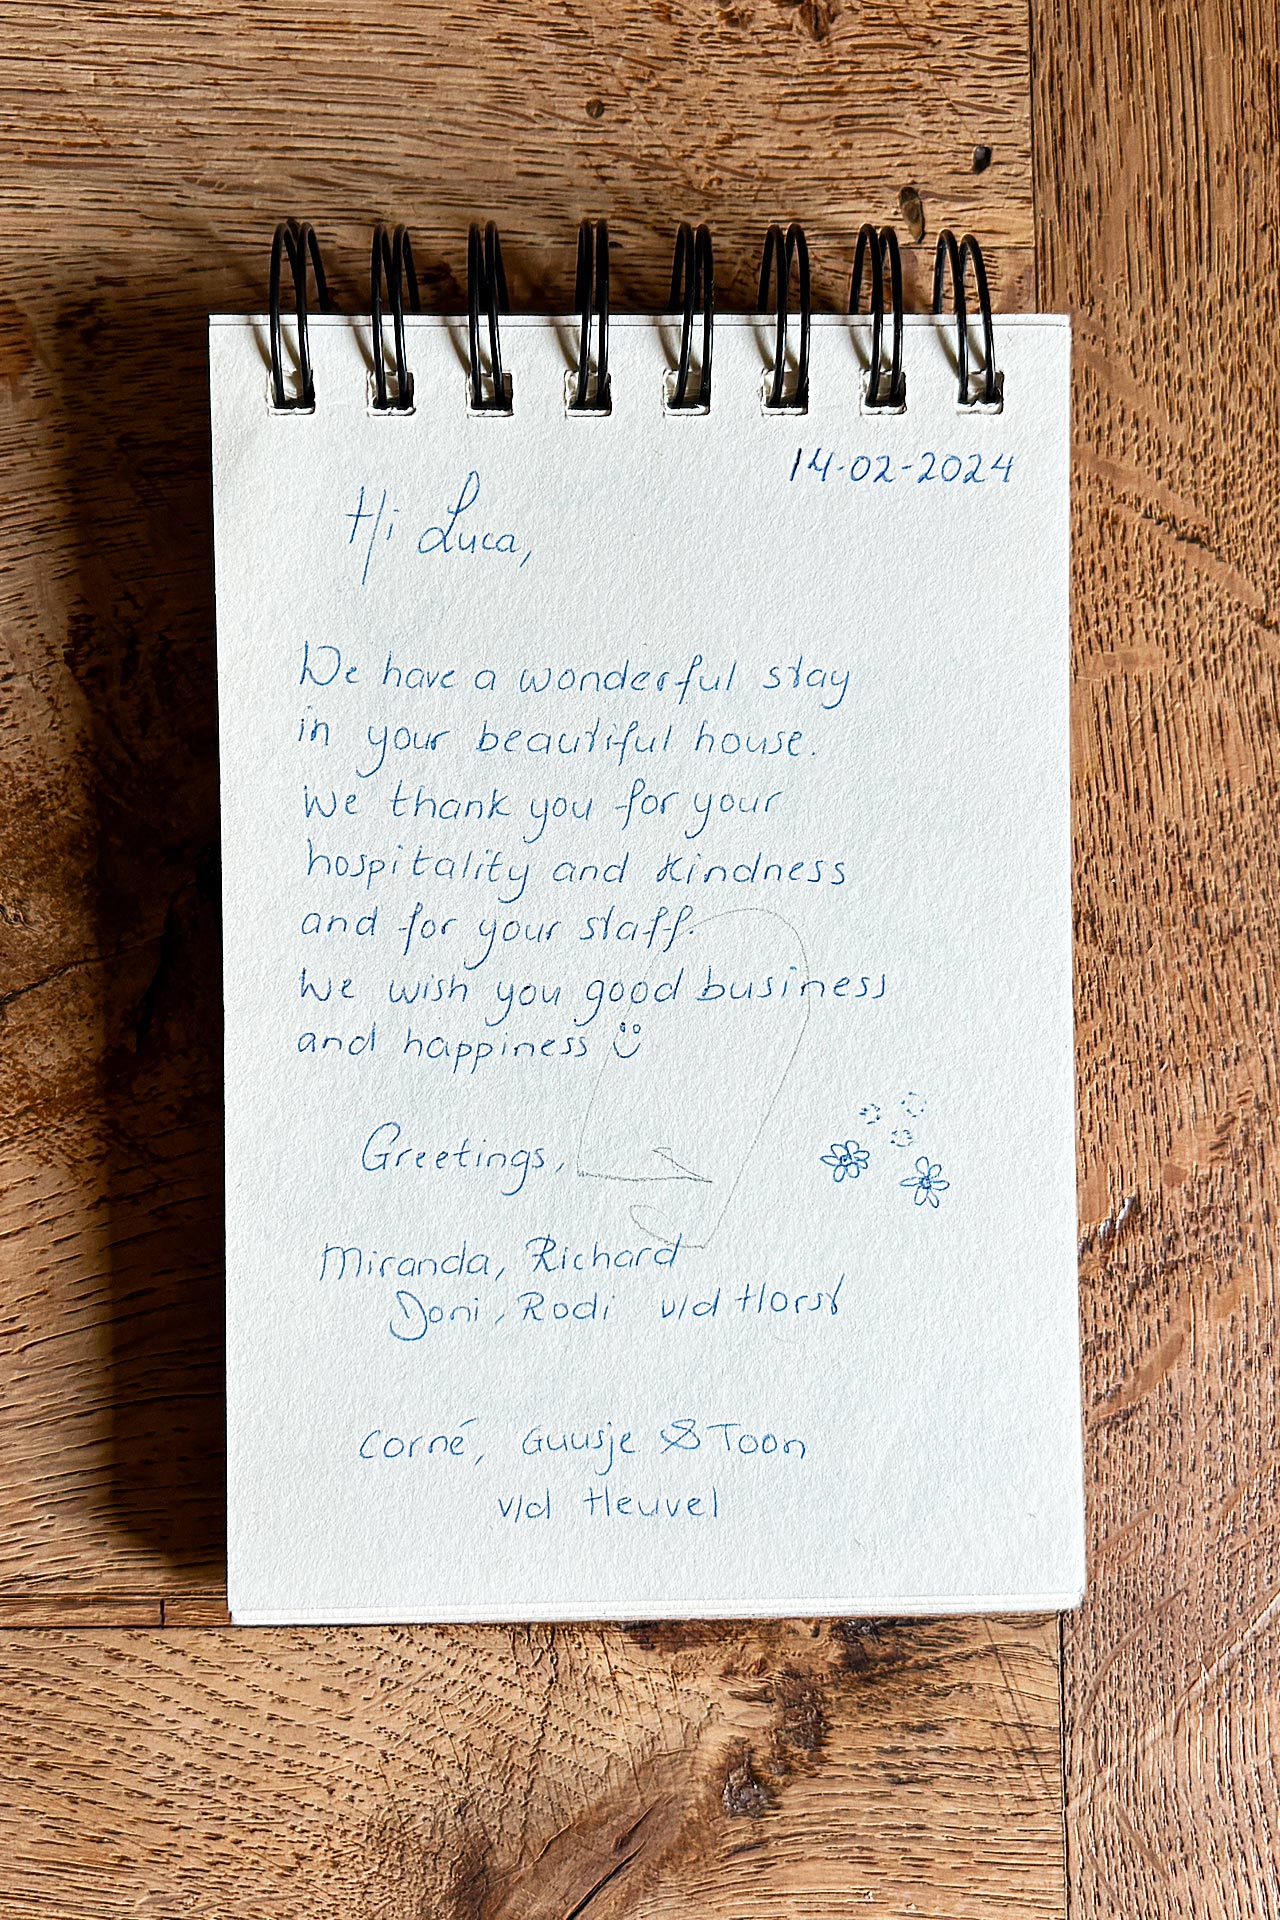 14-02-2024
Hi Luca,
We have a wonderful stay
in your beautiful house.
We thank you for your
hospitality and kindness
and for your staff.
We wish you good business
and happiness
Greetings,
Miranda, Richard
Doni, Rodi v/d Horst
Corné, Guusje & Toon
v/d Heuvel